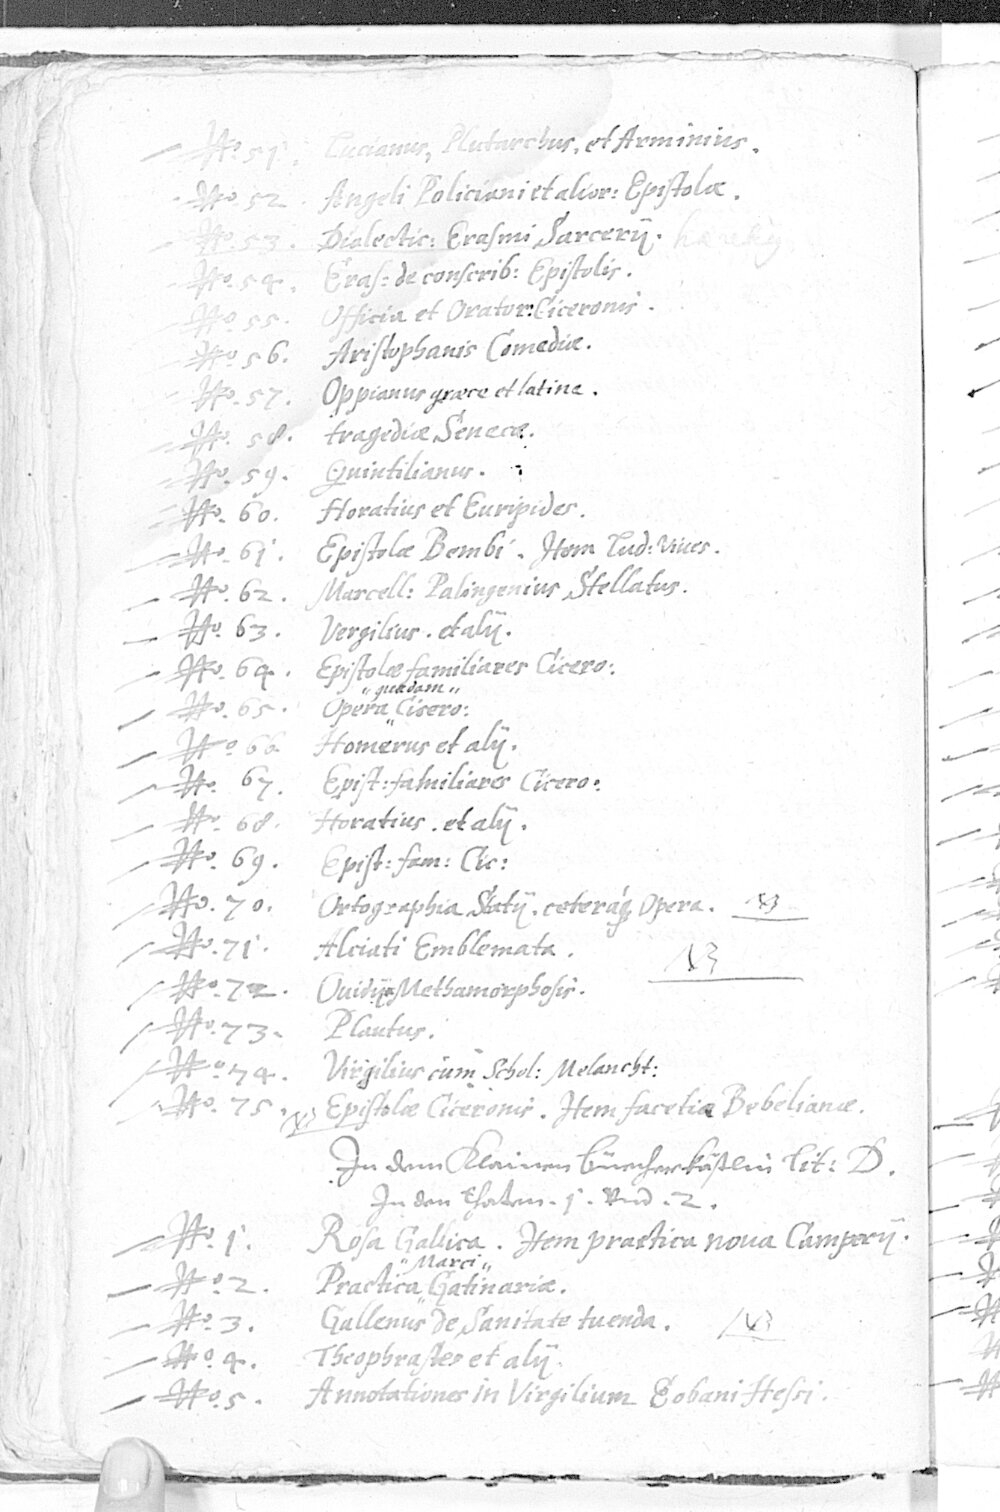 No. 51. Lucianus, Plutarchus, et Arminius.
No. 52 Angeli Policiani et alior: Epistolæ.
No. 53. Dialectic: Erasmi Sarcerÿ.
No. 54. Eras: de conscrib: Epistolis.
No. 55. Officia et Orator: Ciceronis.
No. 56. Aristophanis Comediæ.
No. 57. Oppianus græce et latine.
No. 58. tragediæ Senecæ.
No. 59. Quintilianus.
No. 60. Horatius et Euripides.
No. 61. Epistolæ Bembi. Item Lud: Viues.
No. 62. Marcell: Palingenius Stellatus.
No. 63. Vergilius. et alÿ.
No. 64. Epistolæ familiares Cicero:
"quædam"
No. 65. Opera Cicero:
No. 66 Homerus et alÿ.
No. 67. Epist: familiares Cicero:
No. 68. Horatius. et alÿ.
No. 69. Epist: fam: Cic:
No. 70. Ortographia Statÿ. ceteráq3 Opera. NB
No. 71. Alciati Emblemata. NB
No. 72. Ouidÿ Methamorphosis.
No. 73. Plautus.
No. 74. Virgilius cum Schol: Melancht:
No. 75. NB Epistolæ Ciceronis. Item facetiæ Bebelianæ.
In dem Klainen büecher kästlin Lit: D.
In den 1. vnd. 2.
No. 1. Rosa Gallica. Item practica noua Camperÿ.
"Marci"
No. 2. Practica Gatinariæ.
No. 3. Gallenus de Sanitate tuenda. NB
No. 4. Theophrastes et alÿ.
No. 5. Annotationes in Virgilium Eobani Hessi.